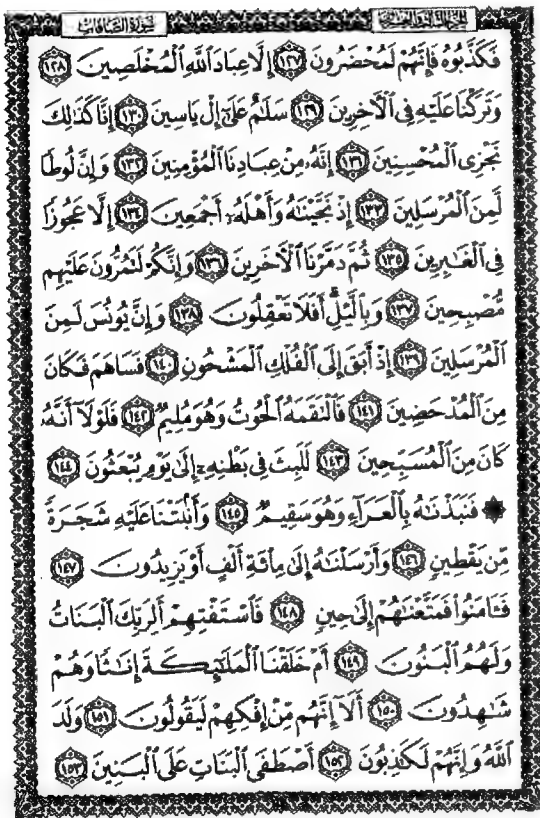 الجزء الثالث والعشرون سورة الصافات
فَكَذَّبُوهُ فَإِنَّهُمْ لَمُحْضَرُونَ ١٢٧ إِلَّا عِبَادَ اللَّهِ الْمُخْلَصِينَ ١٢٨
وَتَرَكْنَا عَلَيْهِ فِي الْآخِرِينَ ١٢٩ سَلَٰمٌ عَلَىٰٓ إِلْ يَاسِينَ ١٣٠ إِنَّا كَذَٰلِكَ
نَجْزِي الْمُحْسِنِينَ ١٣١ إِنَّهُۥ مِنْ عِبَادِنَا الْمُؤْمِنِينَ ١٣٢ وَإِنَّ لُوطًا
لَّمِنَ الْمُرْسَلِينَ ١٣٣ إِذْ نَجَّيْنَٰهُ وَأَهْلَهُۥٓ أَجْمَعِينَ ١٣٤ إِلَّا عَجُوزًا
فِي الْغَٰبِرِينَ ١٣٥ ثُمَّ دَمَّرْنَا الْآخَرِينَ ١٣٦ وَإِنَّكُمْ لَتَمُرُّونَ عَلَيْهِم
مُّصْبِحِينَ ١٣٧ وَبِالَّيْلِ ۗ أَفَلَا تَعْقِلُونَ ١٣٨ وَإِنَّ يُونُسَ لَمِنَ
الْمُرْسَلِينَ ١٣٩ إِذْ أَبَقَ إِلَى الْفُلْكِ الْمَشْحُونِ ١٤٠ فَسَاهَمَ فَكَانَ
مِنَ الْمُدْحَضِينَ ١٤١ فَالْتَقَمَهُ الْحُوتُ وَهُوَ مُلِيمٌ ١٤٢ فَلَوْلَآ أَنَّهُۥ
كَانَ مِنَ الْمُسَبِّحِينَ ١٤٣ لَلَبِثَ فِي بَطْنِهِۦٓ إِلَىٰ يَوْمِ يُبْعَثُونَ ١٤٤
۞ فَنَبَذْنَٰهُ بِالْعَرَآءِ وَهُوَ سَقِيمٌ ١٤٥ وَأَنۢبَتْنَا عَلَيْهِ شَجَرَةً
مِّن يَقْطِينٍ ١٤٦ وَأَرْسَلْنَٰهُ إِلَىٰ مِا۟ئَةِ أَلْفٍ أَوْ يَزِيدُونَ ١٤٧
فَـَٔامَنُوا۟ فَمَتَّعْنَٰهُمْ إِلَىٰ حِينٍ ١٤٨ فَاسْتَفْتِهِمْ أَلِرَبِّكَ الْبَنَاتُ
وَلَهُمُ الْبَنُونَ ١٤٩ أَمْ خَلَقْنَا الْمَلَٰٓئِكَةَ إِنَٰثًا وَهُمْ
شَٰهِدُونَ ١٥٠ أَلَآ إِنَّهُم مِّنْ إِفْكِهِمْ لَيَقُولُونَ ١٥١ وَلَدَ
اللَّهُ وَإِنَّهُمْ لَكَٰذِبُونَ ١٥٢ أَصْطَفَى الْبَنَاتِ عَلَى الْبَنِينَ ١٥٣